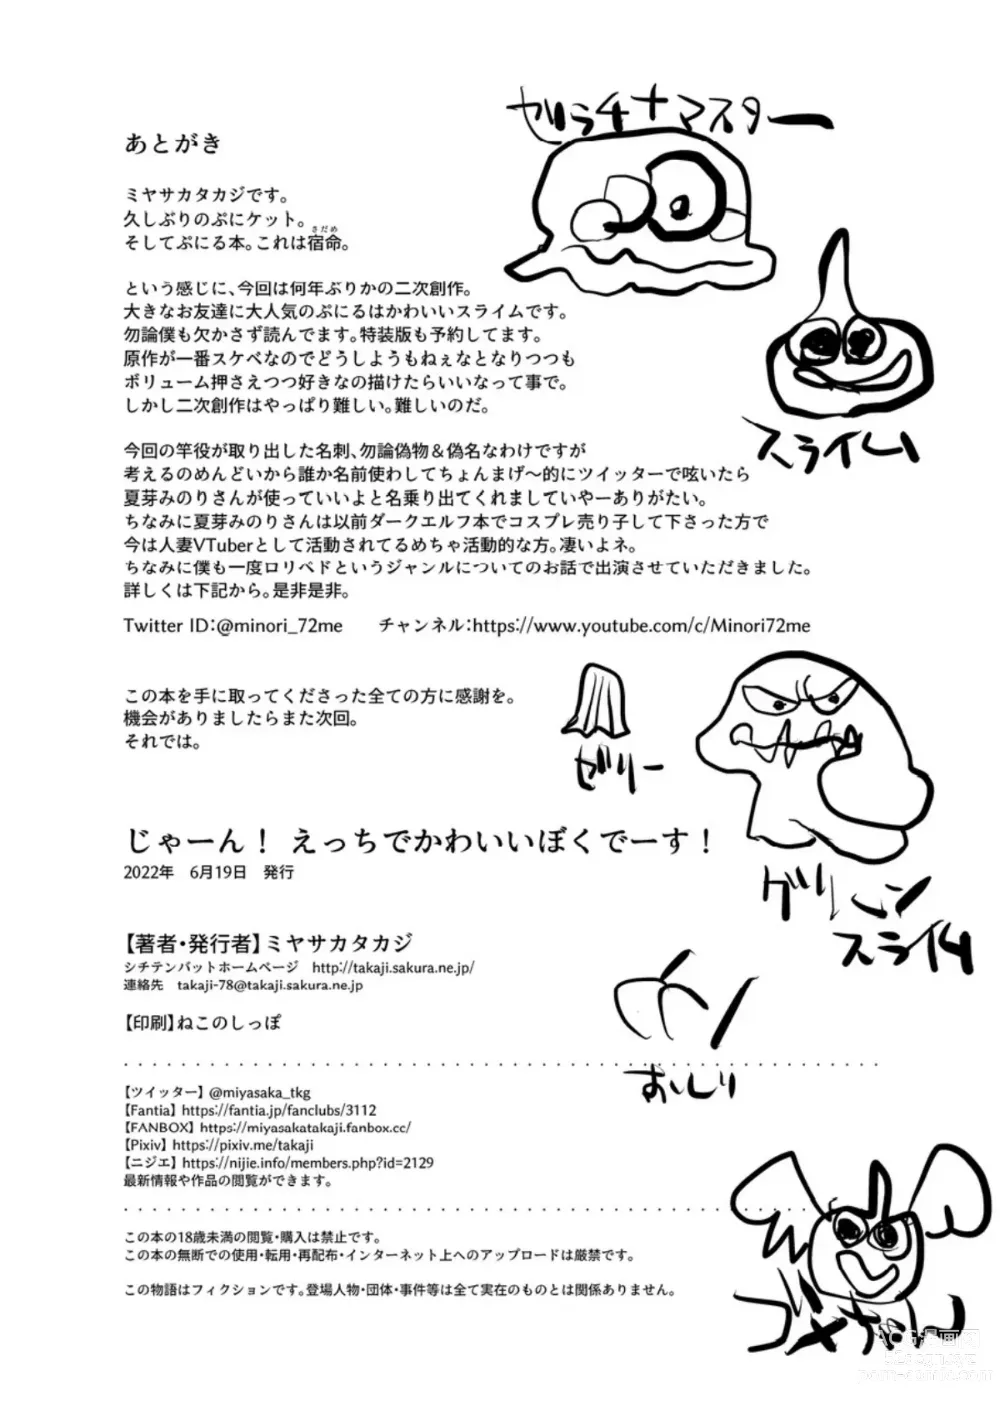 ゼラチナマスター
あとがき
ミヤサカタカジです。
久しぶりのぷにケット。
そしてぷにる本。これは宿命。
さだめ
という感じに、今回は何年ぶりかの二次創作。
大きなお友達に大人気のぷにるはかわいいスライムです。
勿論僕も欠かさず読んでます。特装版も予約してます。
原作が一番スケベなのでどうしようもねぇなとなりつつも
ボリューム押さえつつ好きなの描けたらいいなって事で。
しかし二次創作はやっぱり難しい。難しいのだ。
スライム
今回の竿役が取り出した名刺、勿論偽物&偽名なわけですが
考えるのめんどいから誰か名前使わしてちょんまげ〜的にツイッターで呟いたら
夏芽みのりさんが使っていいよと名乗り出てくれましていやーありがたい。
ちなみに夏芽みのりさんは以前ダークエルフ本でコスプレ売り子して下さった方で
今は人妻VTuberとして活動されてるめちゃ活動的な方。凄いよネ。
ちなみに僕も一度ロリベドというジャンルについてのお話で出演させていただきました。
詳しくは下記から。是非是非。
Twitter ID:@minori_72me チャンネル:https://www.youtube.com/c/Minori72me
この本を手に取ってくださった全ての方に感謝を。
機会がありましたらまた次回。
それでは。
ゼリー
じゃーん! えっちでかわいいぼくでーす!
2022年 6月19日 発行
グリーン
スライム
【著者・発行者】ミヤサカタカジ
シチテンバットホームページ http://takaji.sakura.ne.jp/
連絡先 takaji-78@takaji.sakura.ne.jp
【印刷】ねこのしっぽ
おいしい
【ツイッター】@miyasaka_tkg
【Fantia】https://fantia.jp/fanclubs/3112
【FANBOX】https://miyasakatakaji.fanbox.cc/
【Pixiv】https://pixiv.me/takaji
【ニジエ】https://nijie.info/members.php?id=2129
最新情報や作品の閲覧ができます。
この本の18歳未満の閲覧・購入は禁止です。
この本の無断での使用・転用・再配布・インターネット上へのアップロードは厳禁です。
この物語はフィクションです。登場人物・団体・事件等は全て実在のものとは関係ありません。